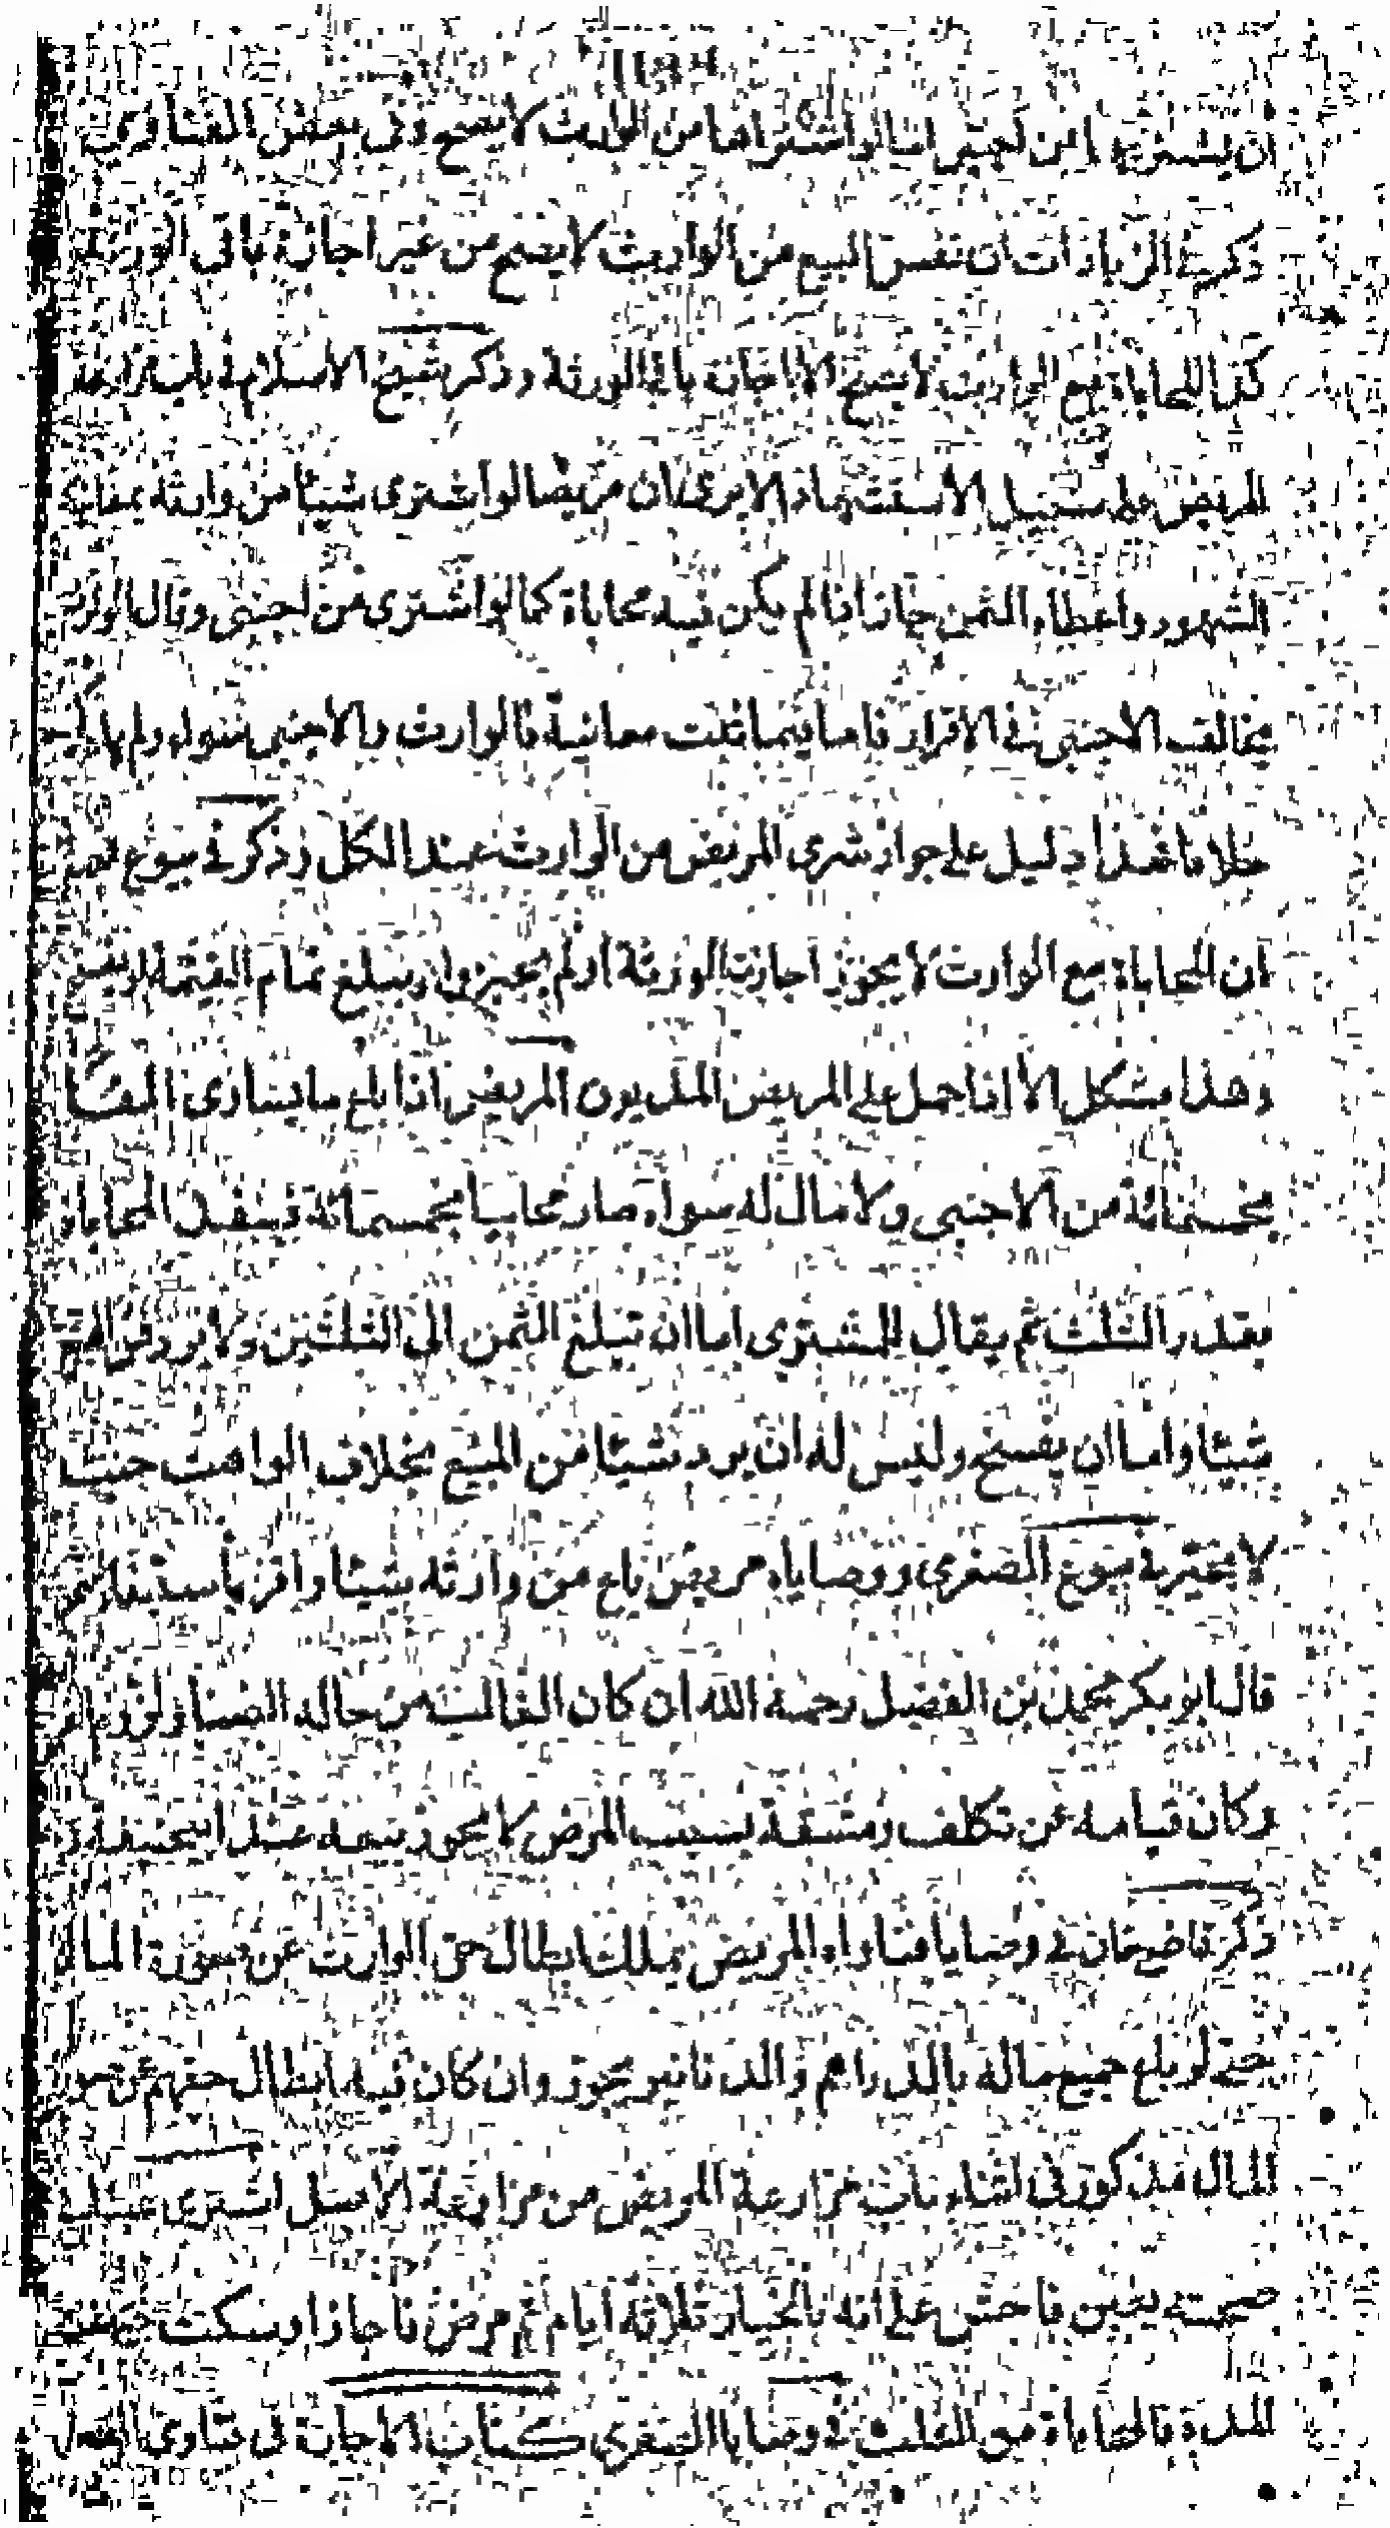 ان يشتريه من اجنبي اما لو اشتراها من الوارث لا يصح وفي بعض الفتاوى
ذكر في الزيادات ان نفس البيع من الوارث لا يصح من غير اجازة باقي الورثة
كذا المحاباة مع الوارث لا يصح الا باجازة باقي الورثة وذكر شيخ الاسلام في باب مزارعة
المريض على سبيل الاستشهاد الا يرى ان مريضا لو اشترى شيئا من وارثه بمعاينة
الشهود واعطاه الثمن جاز اذا لم يكن فيه محاباة كما لو اشترى من اجنبي وقال الوارث
يخالف الاجنبي في الاقرار فاما فيما ثبت معاينة فالوارث والاجنبي سواء ولم
خلافا فهذا دليل على جواز شرى المريض من الوارث عند الكل وذكر في بيوع
ان المحاباة مع الوارث لا يجوز اجازت الورثة او لم يجيزوا ويبلغ تمام القيمة او
وهذا مشكل الا اذا حمل على المريض المديون المريض اذا باع ما يساوي الفا
بخمسمائة من الاجنبي ولا مال له سواه صار محابيا بخمسمائة فينفذ المحاباة
بقدر الثلث ثم يقال للمشتري اما ان تبلغ الثمن الى الثلثين ولا يرد من المبيع
شيئا واما ان يفسخ وليس له ان يرد شيئا من المبيع بخلاف الواهب حيث
لا يخير في بيوع الصغرى ووصاياه مريض باع من وارثه شيئا واقر باستيفاء
قال ابو بكر محمد بن الفضيل رحمة الله ان كان الغالب من حاله الضنا ولزوم
وكان قيامه عن تكلف ومشقة بسبب المرض لا يجوز بيعه عند ابي حنيفة
ذكر قاضيخان في وصايا فتاواه المريض يملك ابطال حق الوارث عن صورة المال
حتى لو باع جميع ماله بالدراهم والدنانير يجوز وان كان فيه ابطال حقهم عن صورة
المال مذكور في اثناء باب مزارعة المريض من مزارعة الاصل اشترى
صحته بغبن فاحش على انه بالخيار ثلاثة ايام ثم مرض فاجاز او سكت حتى مضت
المدة فالمحاباة من الثلث في وصايا الصغرى كتاب الاجارة في فتاوى الفضل